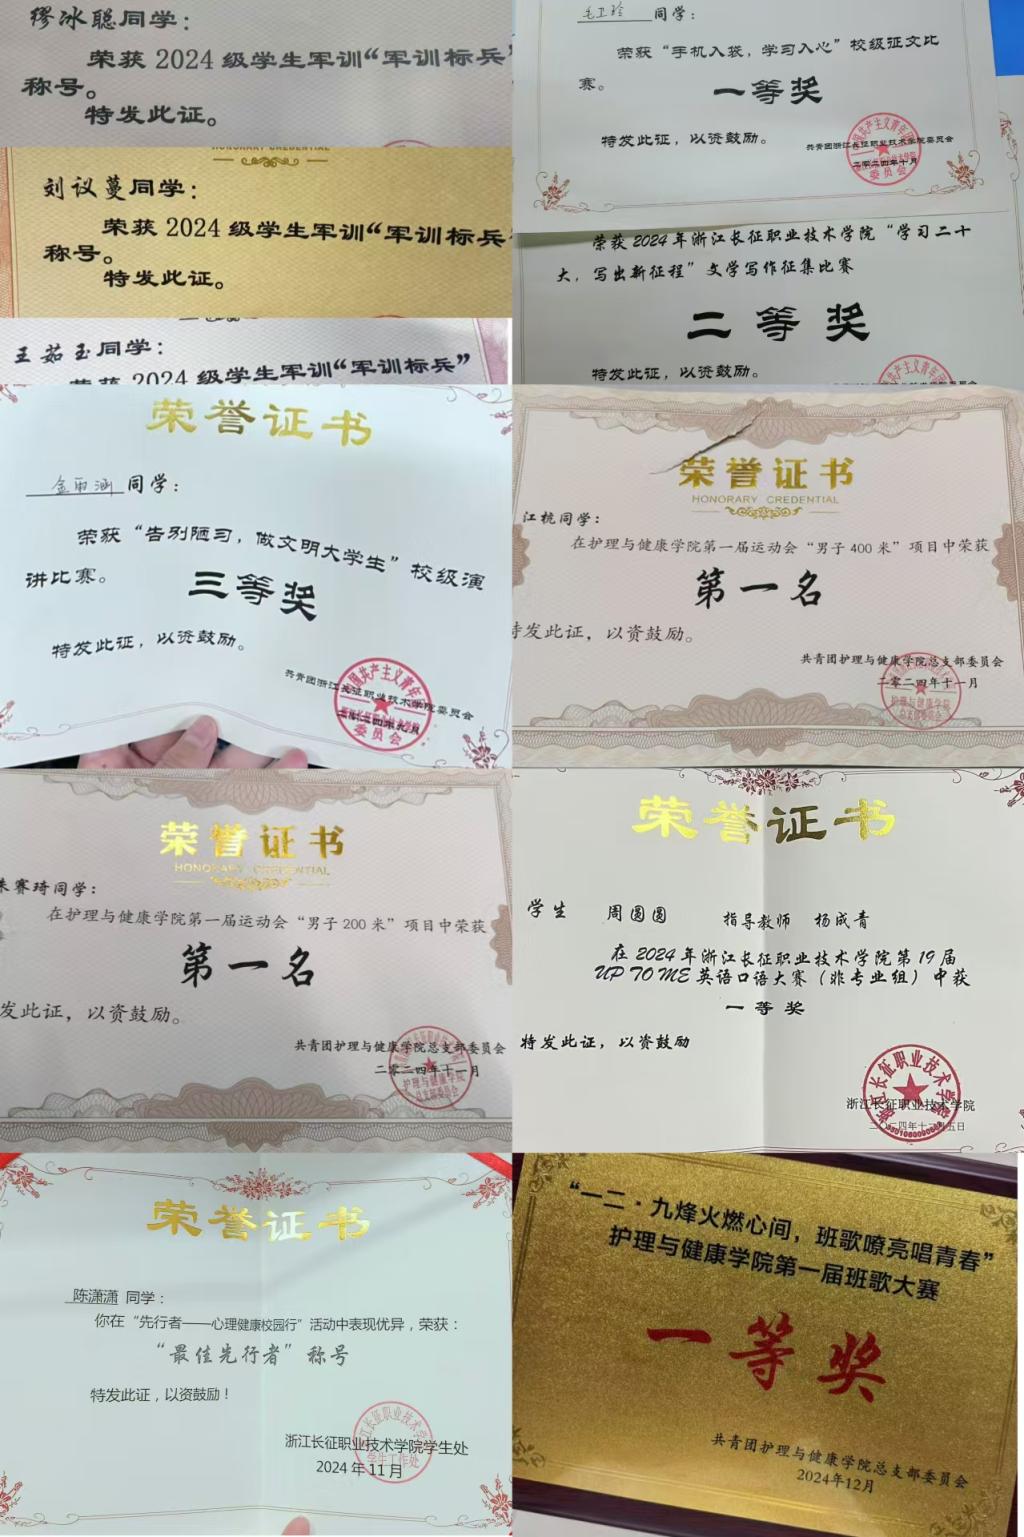 缪冰聪同学：
荣获 2024 级学生军训“军训标兵”
称号。
特发此证。
HONORARY CREDENTIAL
刘议蔓同学：
荣获 2024 级学生军训“军训标兵
称号。
特发此证。
王茹玉同学：
荣获 2024 级学生军训“军训标兵”
毛卫玲 同学：
荣获“手机入袋，学习入心”校级征文比
赛。
一等奖
特发此证，以资鼓励。
共青团浙江长征职业技术学院委员会
二零二四年十月
荣获 2024 年浙江长征职业技术学院“学习二十
大，写出新征程”文学写作征集比赛
二等奖
特发此证，以资鼓励。
荣誉证书
金雨涵 同学：
荣获“告别陋习，做文明大学生”校级演
讲比赛。
三等奖
特发此证，以资鼓励。
共青团浙江长征职业技术学院委员会
二零二四年九月
荣誉证书
HONORARY CREDENTIAL
江杭同学：
在护理与健康学院第一届运动会“男子 400 米”项目中荣获
第一名
特发此证，以资鼓励。
共青团护理与健康学院总支部委员会
二零二四年十一月
荣誉证书
HONORARY CREDENTIAL
朱赛琦同学：
在护理与健康学院第一届运动会“男子 200 米”项目中荣获
第一名
发此证，以资鼓励。
共青团护理与健康学院总支部委员会
二零二四年十一月
荣誉证书
学生 周圆圆 指导教师 杨成青
在 2024 年浙江长征职业技术学院第 19 届
UP TO ME 英语口语大赛（非专业组）中获
一等奖
特发此证，以资鼓励
浙江长征职业技术学院
荣誉证书
陈潇潇 同学：
你在“先行者——心理健康校园行”活动中表现优异，荣获：
“最佳先行者”称号
特发此证，以资鼓励！
浙江长征职业技术学院学生处
2024 年 11 月
“一二·九烽火燃心间，班歌嘹亮唱青春”
护理与健康学院第一届班歌大赛
一等奖
共青团护理与健康学院总支部委员会
2024年12月